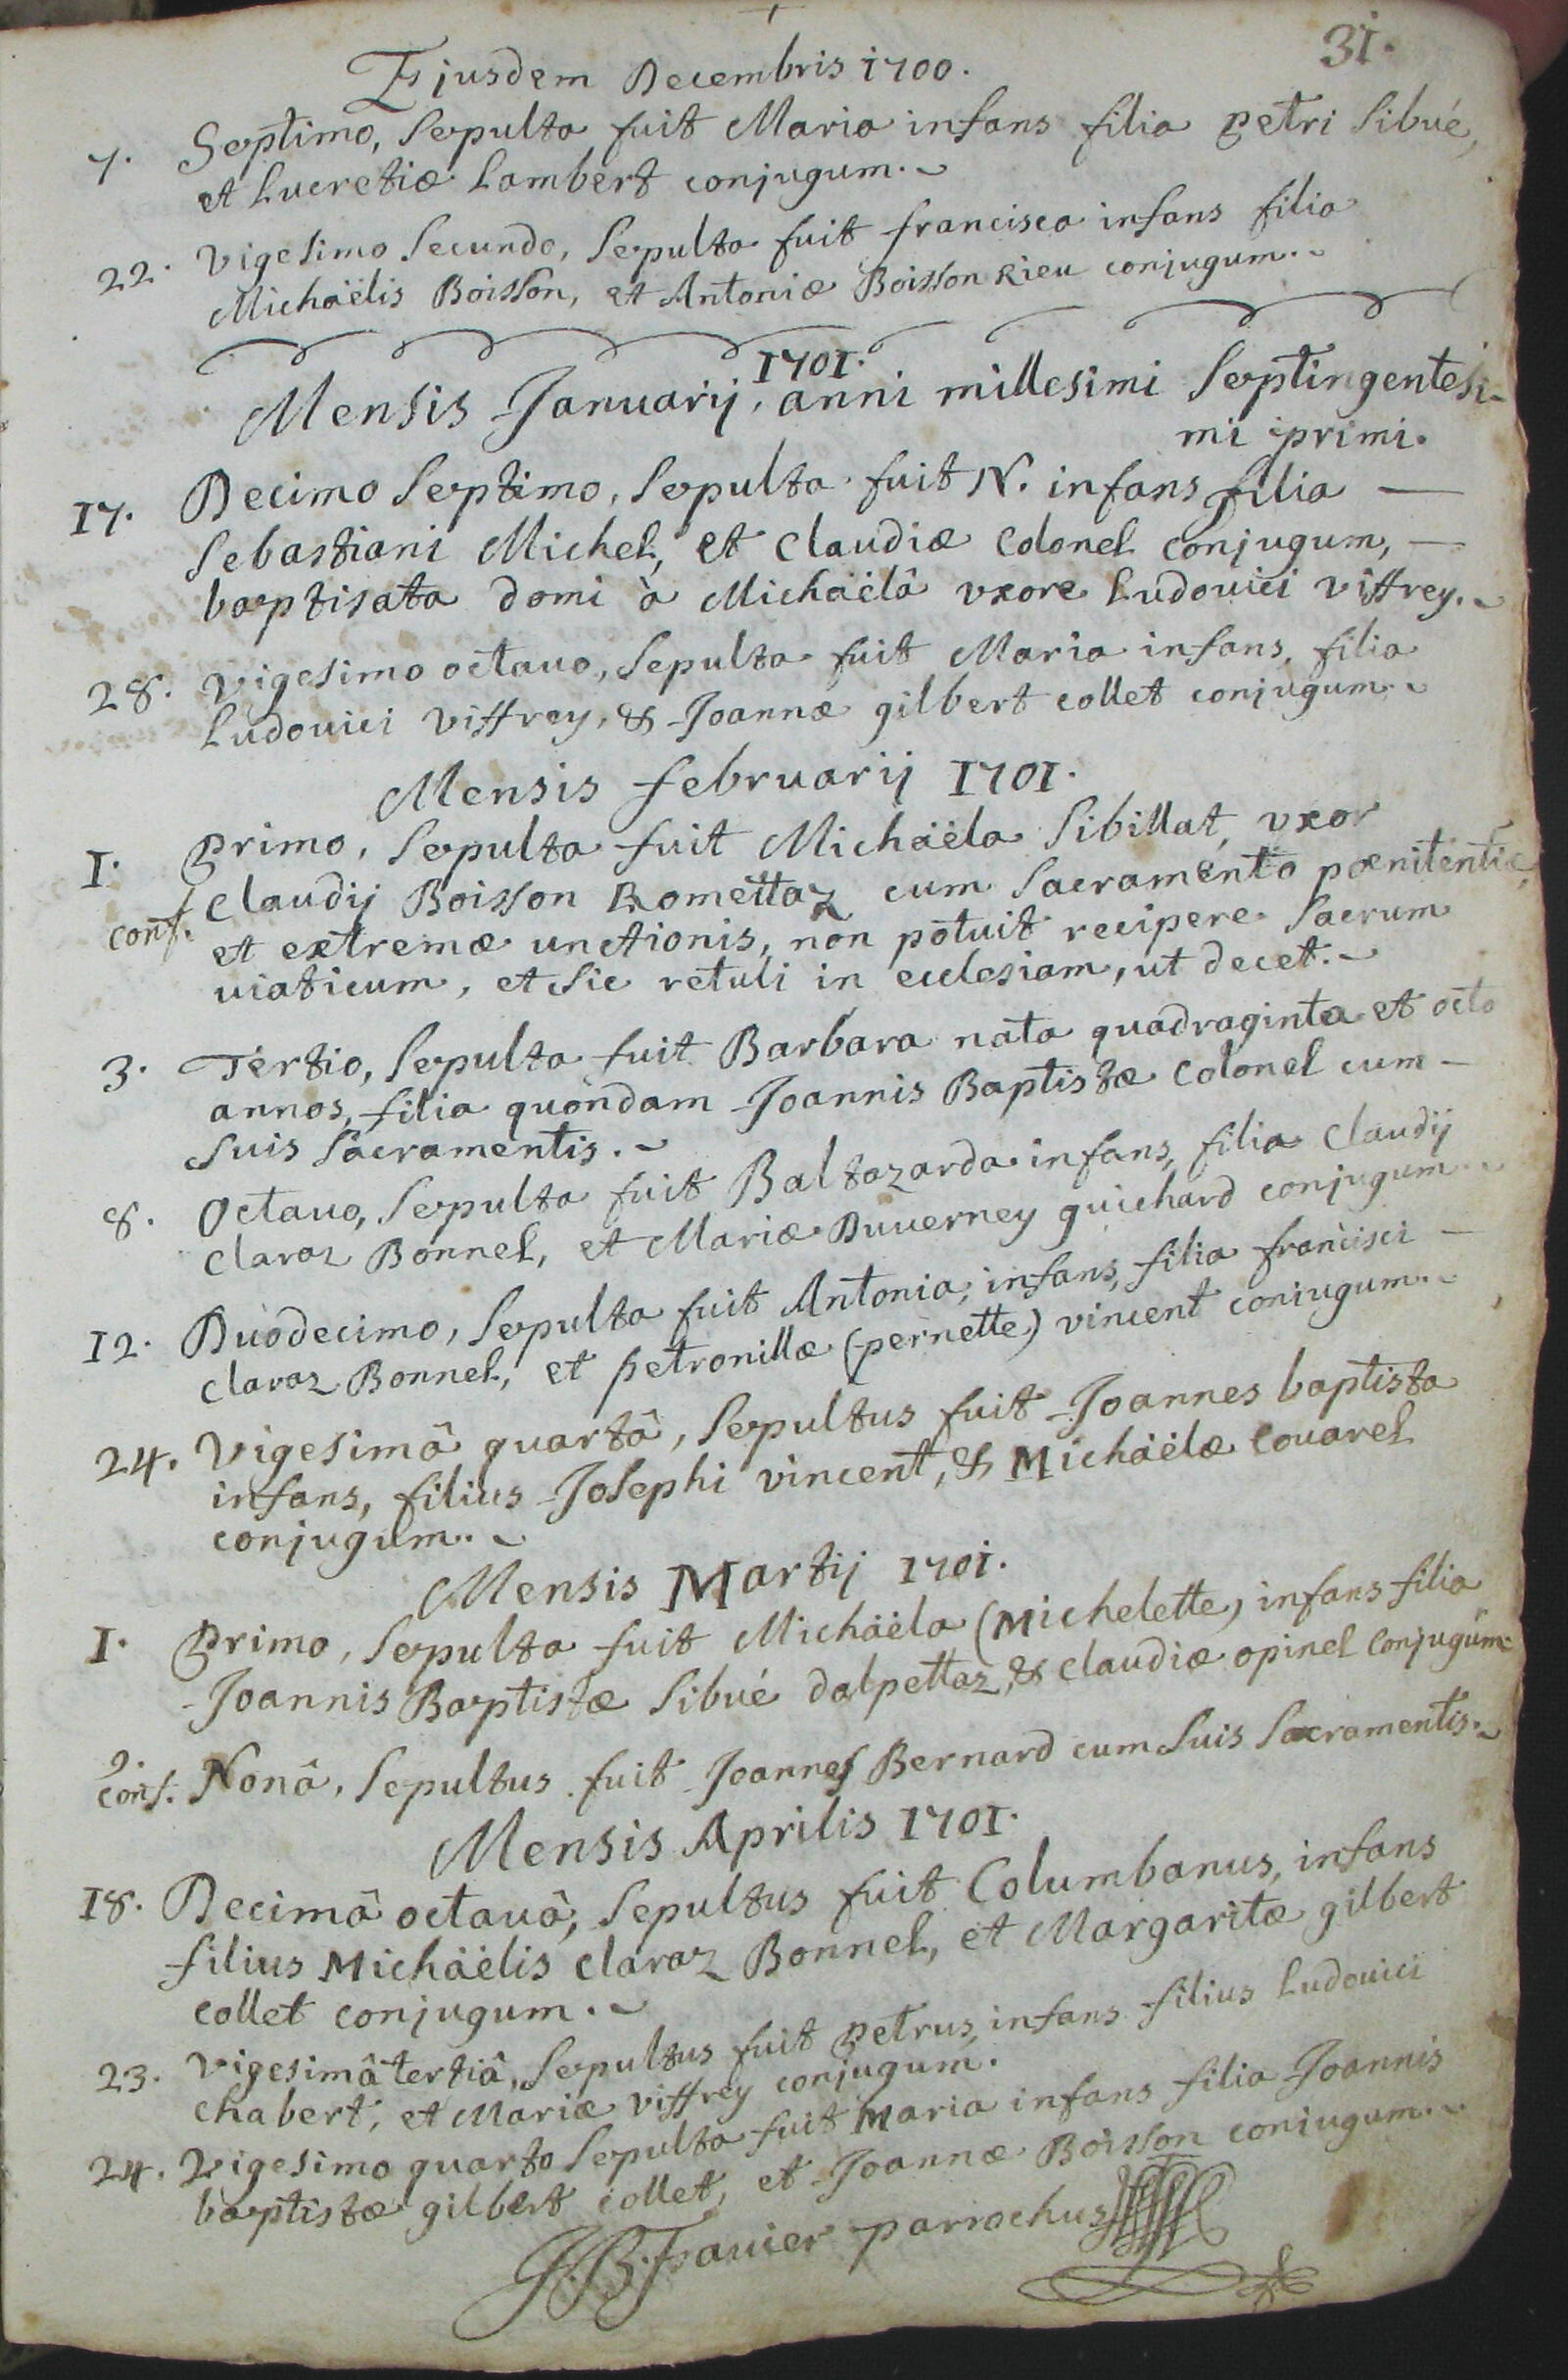 31.
Ejusdem Decembris 1700.
7. Septimo, Sepulta fuit Maria infans filia petri Sibué,
et Lucretiæ Lambert conjugum.
22. vigesimo Secundo, Sepulta fuit francisca infans filia
Michaëlis Boisson, et Antoniæ Boisson Rieu conjugum.
1701.
Mensis Januarij, anni millesimi Septingentesi-
mi primi.
17. Decimo Septimo, Sepulta fuit N. infans filia —
Sebastiani Michel, et Claudiæ Colonel conjugum, —
baptisata domi à Michaëlâ vxore Ludouici viffrey.
28. vigesimo octauo, Sepulta fuit Maria infans, filia
Ludouici viffrey, & Joannæ gilbert collet conjugum.
Mensis februarij 1701.
1. Primo, Sepulta fuit Michaëla Sibillat, vxor
Claudij Boisson Romettaz cum Sacramento pœnitentiæ,
conf. et extremæ unctionis, non potuit recipere Sacrum
uiaticum, et Sic retuli in ecclesiam, ut decet.
3. Tertio, Sepulta fuit Barbara nata quadraginta et octo
annos, filia quondam Joannis Baptistæ Colonel cum —
Suis Sacramentis.
8. Octauo, Sepulta fuit Baltazarda infans, filia Claudij
Claraz Bonnel, et Mariæ Duuerney guichard conjugum.
12. Duodecimo, Sepulta fuit Antonia, infans, filia francisci —
Claraz Bonnel, et petronillæ (pernette) vincent coniugum.
24. vigesimâ quartâ, Sepultus fuit Joannes baptista
infans, filius Josephi vincent, & Michaëlæ Couarel
conjugum.
Mensis Martij 1701.
1. Primo, Sepulta fuit Michaëla (Michelette) infans filia
Joannis Baptistæ Sibué dalpettaz, & Claudiæ opinel Conjugum.
9. conf. Nonâ, Sepultus fuit Joannes Bernard cum Suis Sacramentis.
Mensis Aprilis 1701.
18. Decimâ octauâ, Sepultus fuit Columbanus, infans
filius Michaëlis Claraz Bonnel, et Margaritæ gilbert
collet conjugum.
23. vigesimâ tertiâ, Sepultus fuit petrus, infans filius Ludouici
Chabert, et Mariæ viffrey conjugum.
24. vigesimo quarto Sepulta fuit Maria infans filia Joannis
baptistæ gilbert collet, et Joannæ Boisson coniugum.
J. B. Favier parrochus